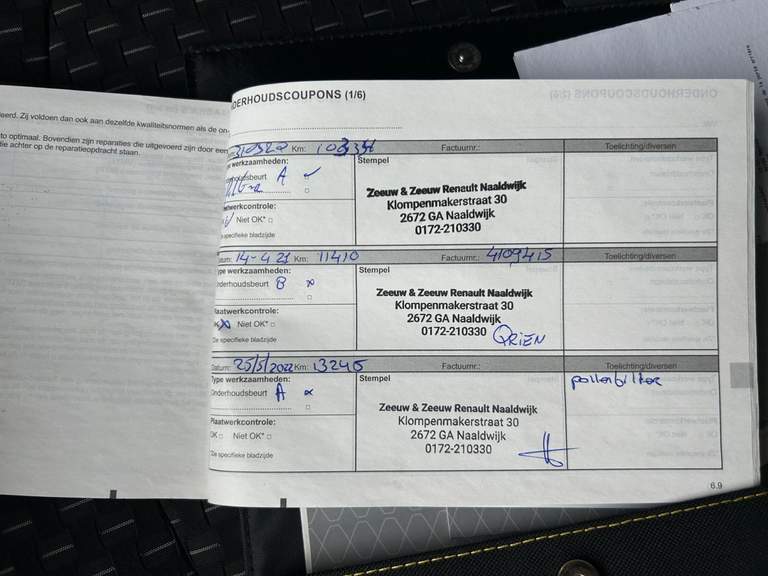 DERHOUDSCOUPONS (1/6)
eerd. Zij voldoen dan ook aan dezelfde kwaliteitsnormen als de on-
to optimaal. Bovendien zijn reparaties die uitgevoerd zijn door een
tie achter op de reparatieopdracht staan.
Km: Factuurnr.: Toelichting/diversen
pe werkzaamheden: Stempel
houdsbeurt A
Zeeuw & Zeeuw Renault Naaldwijk
Klompenmakerstraat 30
2672 GA Naaldwijk
0172-210330
atwerkcontrole:
Niet OK*
specifieke bladzijde
Datum: 14-4 21 Km: 11410 Factuurnr.: 4109415 Toelichting/diversen
Type werkzaamheden: Stempel
Onderhoudsbeurt B x
Zeeuw & Zeeuw Renault Naaldwijk
Klompenmakerstraat 30
2672 GA Naaldwijk
0172-210330 QRIEN
Plaatwerkcontrole:
OK x Niet OK*
*De specifieke bladzijde
Datum: 25/5/2022 Km: 13245 Factuurnr.: Toelichting/diversen
Type werkzaamheden: Stempel pollenfilter
Onderhoudsbeurt A x
Zeeuw & Zeeuw Renault Naaldwijk
Klompenmakerstraat 30
2672 GA Naaldwijk
0172-210330
Plaatwerkcontrole:
OK Niet OK*
*De specifieke bladzijde
6.9